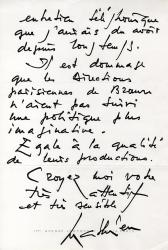 entretien téléphonique
que j'aurais du avoir
depuis longtemps.
Il est dommage
que les Directions
parisiennes de Braun
n'aient pas suivi
une politique plus
imaginative.
Egale à la qualité
de leurs productions.
Croyez moi votre
très attentif
et très sensible
Mathieu